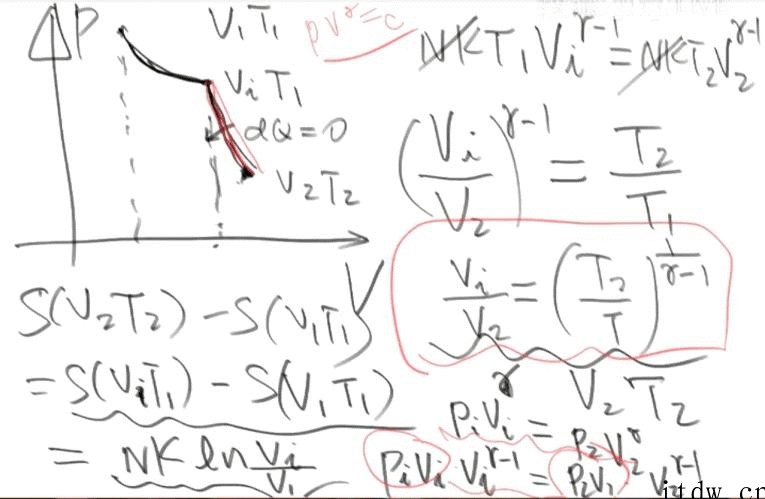 P
V₁T₁
PV^γ=C
NKT₁Vᵢ^γ-1=NKT₂V₂^γ-1
VᵢT₁
dQ=0
V₂T₂
(Vᵢ/V₂)^γ-1 = T₂/T₁
Vᵢ/V₂=(T₂/T)^1/γ-1
V
S(V₂T₂)-S(V₁T₁)
=S(VᵢT₁)-S(V₁T₁)
=NK ln Vᵢ/V₁
V₂T₂
PᵢVᵢ^γ=P₂V₂^γ
PᵢVᵢ Vᵢ^γ-1=P₂V₁ V₂^γ-1
itdw.cn